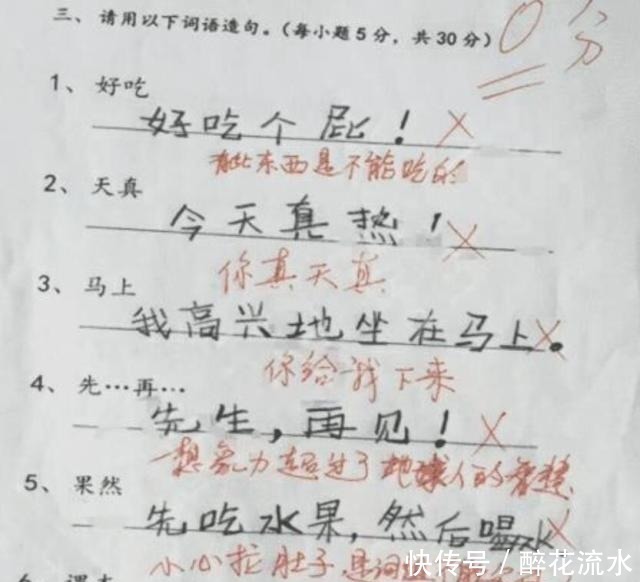 三、请用以下词语造句。(每小题5分，共30分)
0分
1、好吃
好吃个屁！
有些东西是不能吃的
2、天真
今天真热！
你真天真
3、马上
我高兴地坐在马上。
你给我下来
4、先…再…
先生，再见！
想象力超过了地球人的智慧
5、果然
先吃水果，然后喝水
小心拉肚子，是词
快传号／醉花流水